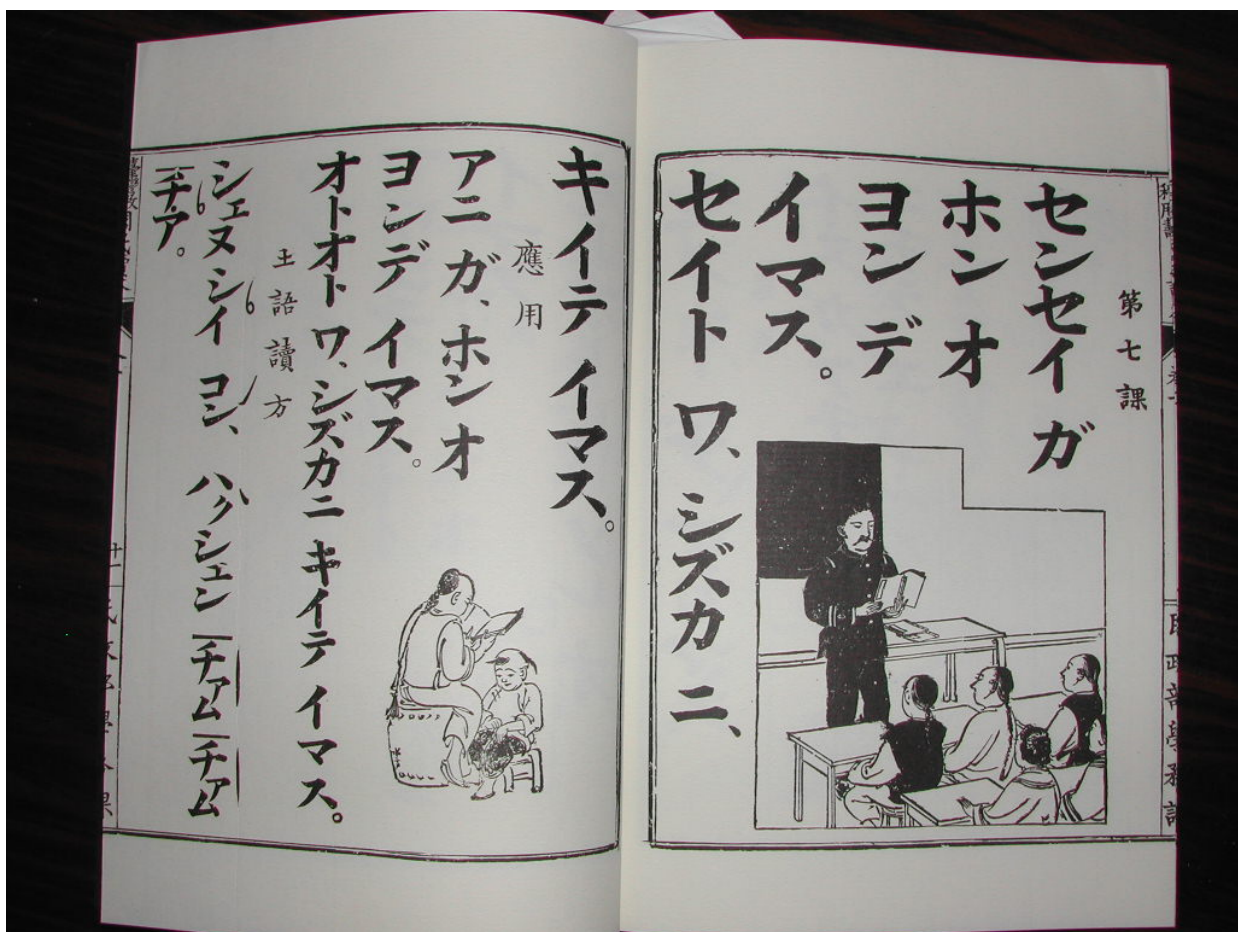 第七課
センセイ ガ
ホン オ
ヨン デ
イマス。
セイト ワ、シズカ ニ、
キイテ イマス。
應用
アニ ガ、ホン オ
ヨンデ イマス。
オトオト ワ、シズカニ キイテ イマス。
土語讀方
シェヌ シイ コン、 ハクシェン チァム チァム
チァ。
民政部學務課
十一